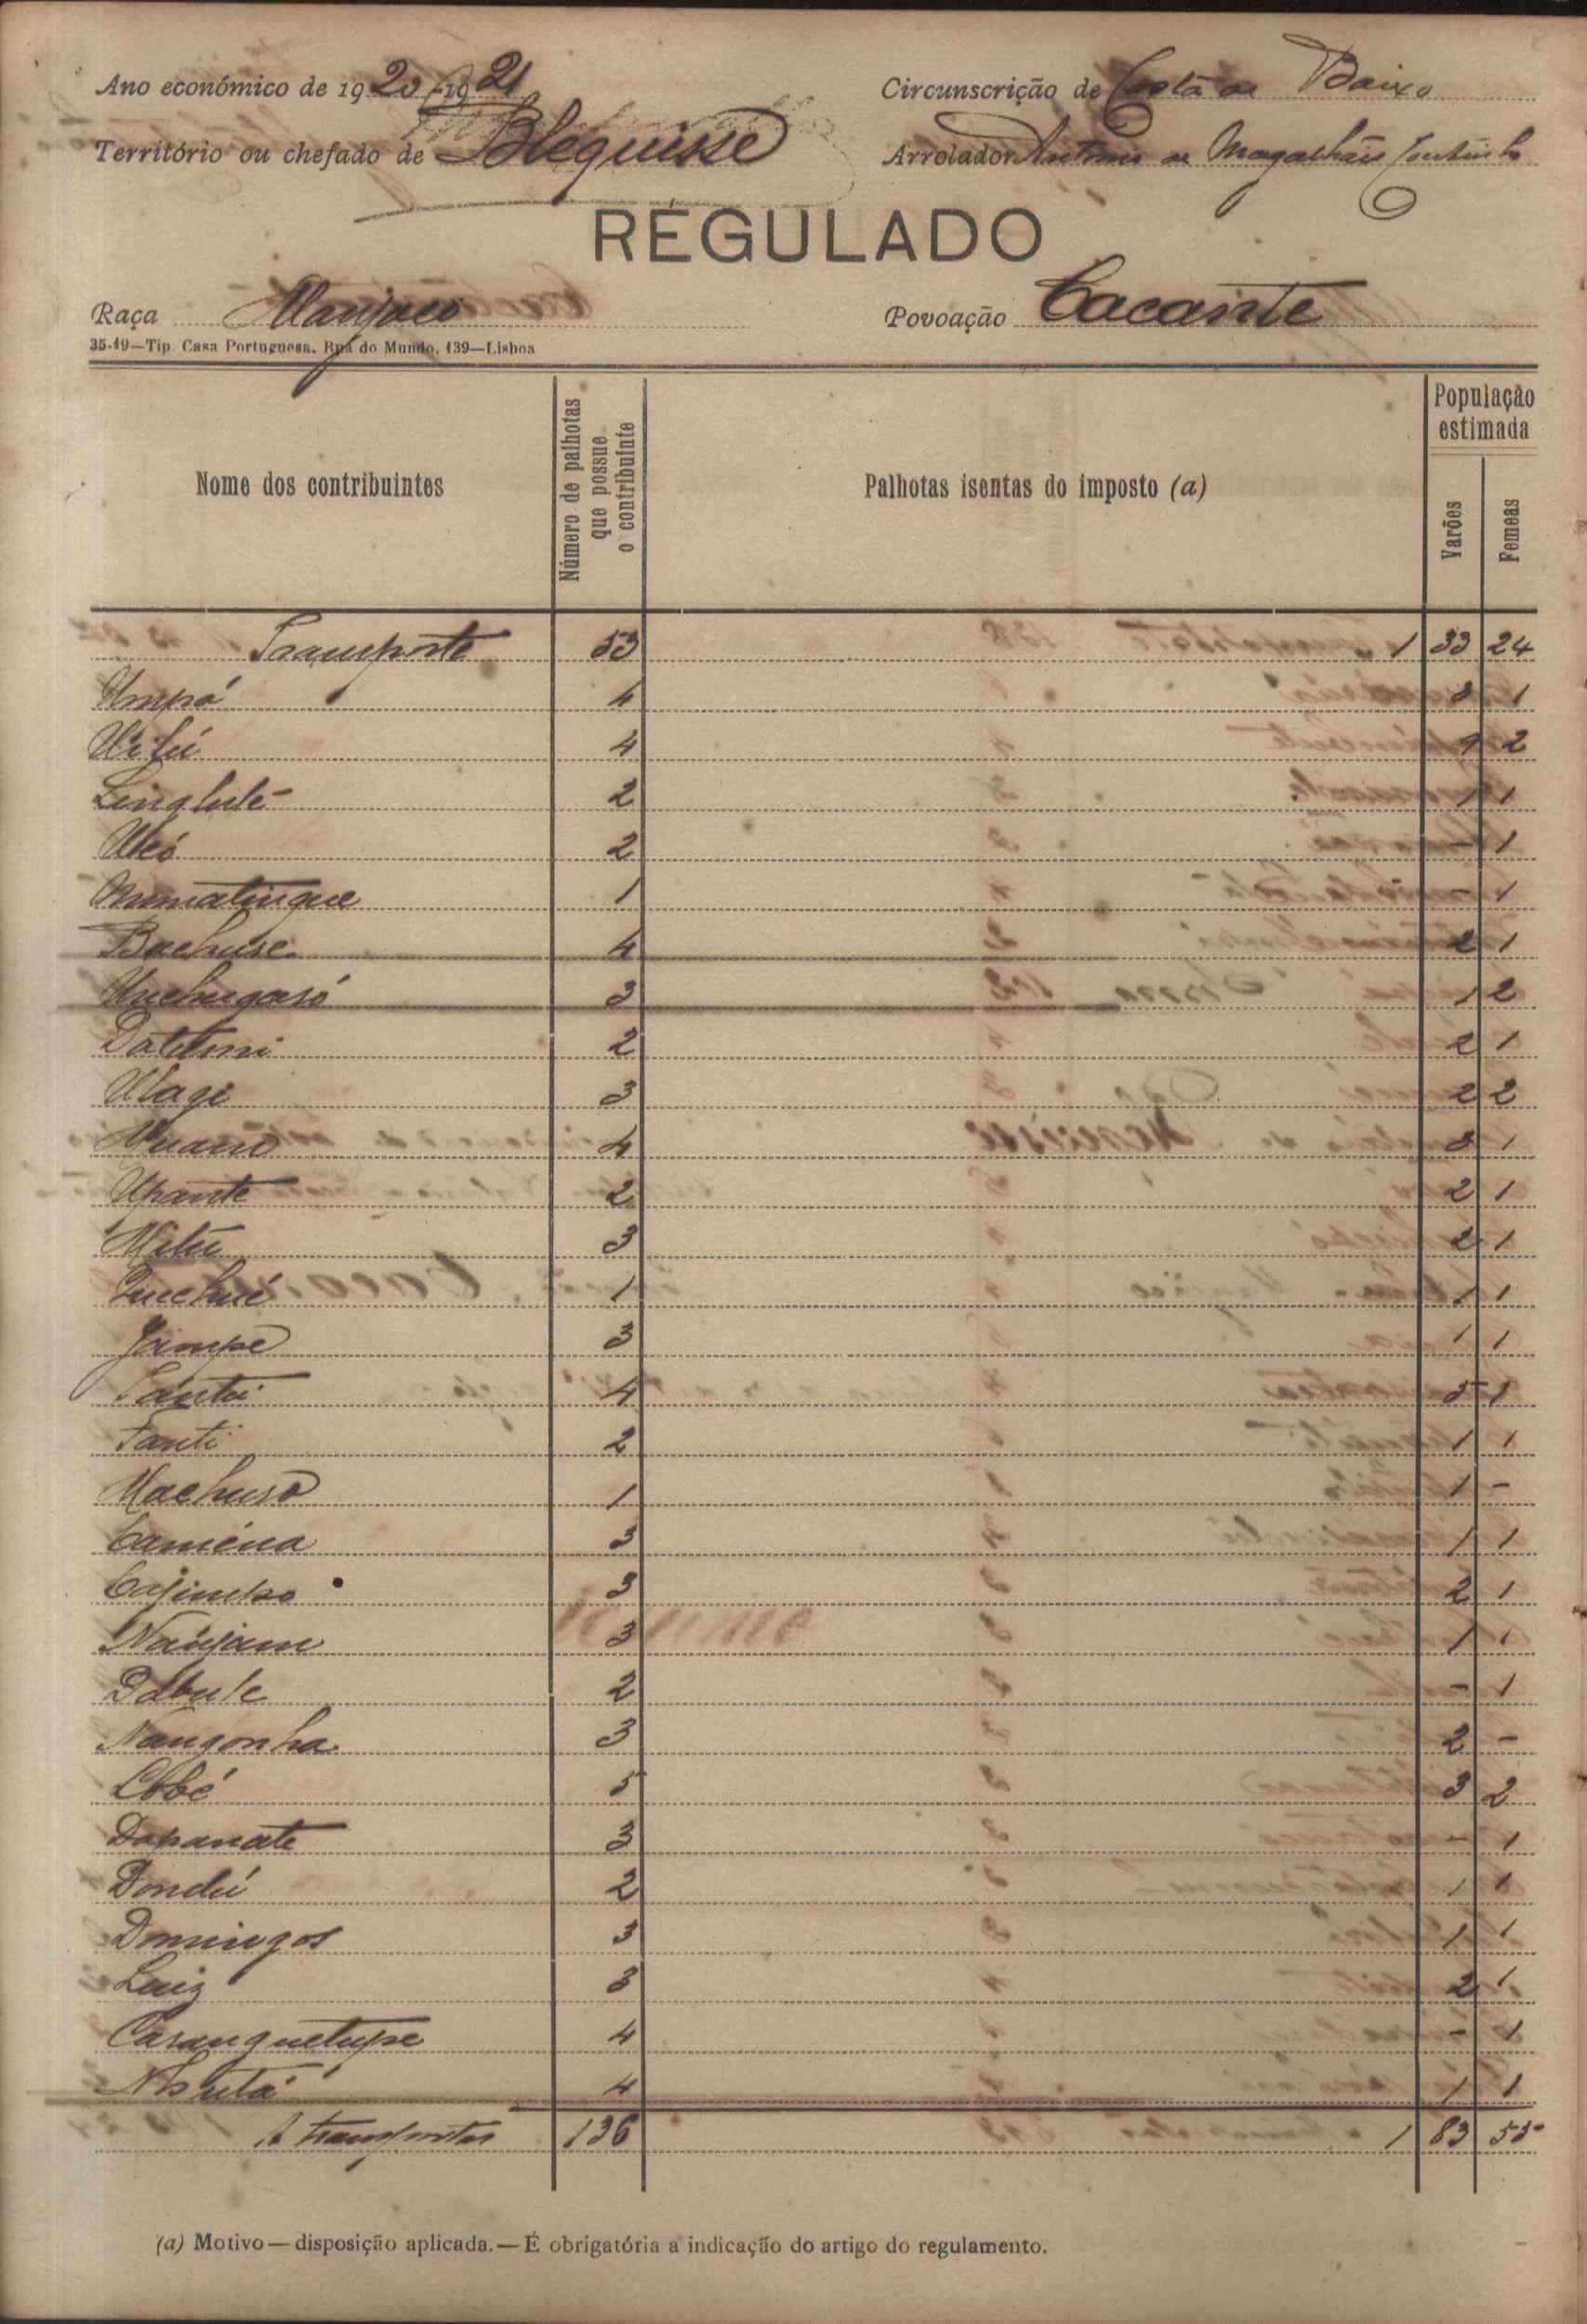 Ano económico de 1920-1921
Circunscrição de Costa de Baixo
Território ou chefado de Blequisse
Arrolador Antonio de Magalhães Coutinho
RÉGULADO
Raça Manjaco
Povoação Cacante
35-19—Tip. Casa Portuguesa. Rua do Mundo, 139—Lisboa
Nome dos contribuintes
Número de palhotas que possue o contribuinte
Palhotas isentas do imposto (a)
População estimada
Varões
Femeas
Transporte 53 1 33 24
Umpá 4 3 1
4 2
2 1 1
2 - 1
1 - 1
Bachuse 4 2 1
3 1 2
2 2 1
Ulagi 3 2 2
4 3 1
Upante 2 2 1
3 2 1
1 1 1
Jimpe 3 1 1
4 5 1
Fanti 2 1 1
1 1 -
Caména 3 1 1
3 2 1
Naujam 3 1 1
2 - 1
Nangonha 3 2 -
Lobé 5 3 2
Dapanate 3 - 1
Dondú 2 1 1
Domingos 3 1 1
Luiz 3 2 1
Caranguetupe 4 - 1
4 1 1
A transportar 136 1 83 55
(a) Motivo — disposição aplicada. — É obrigatória a indicação do artigo do regulamento.